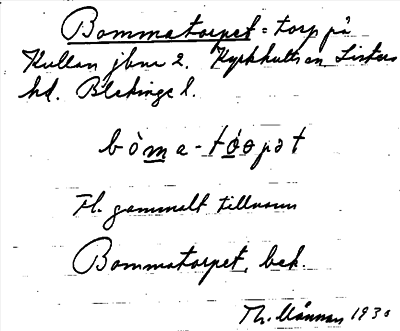 Bommatorpet = torp på
Kullan jbnr 2. Kyrkhults sn Listers
hd. Blekinge l.
bòma-tórpət
Fl. gammalt tillnamn
Bommatorpet, bek.
Th. 1930